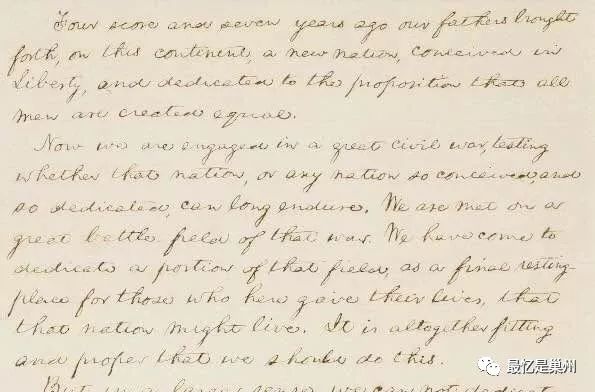 Four score and seven years ago our fathers brought
forth, on this continent, a new nation, conceived in
Liberty, and dedicated to the proposition that all
men are created equal.
Now we are engaged in a great civil war, testing
whether that nation, or any nation so conceived, and
so dedicated, can long endure. We are met on a
great battle field of that war. We have come to
dedicate a portion of that field, as a final resting-
place for those who here gave their lives, that
that nation might live. It is altogether fitting
and proper that we should do this.
But in a larger sense, we can not dedicate
最忆是巢州